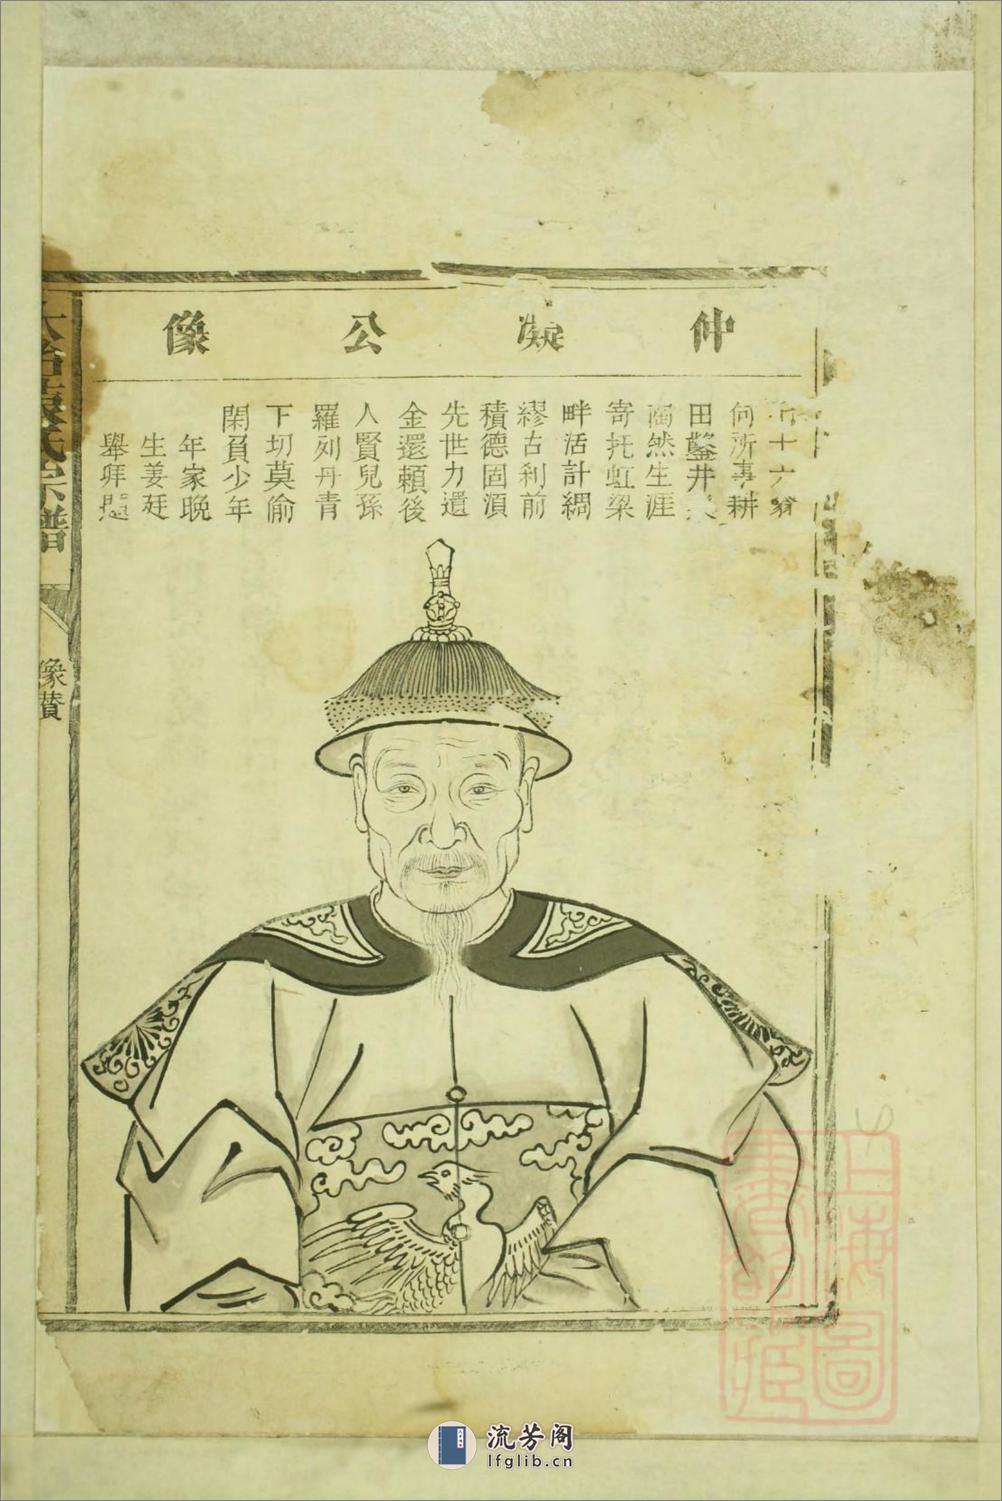 仲凝公像
十六翁
何所事耕
田鑿井
然生涯
寄托虹梁
畔活計綢
繆古利前
積德固須
先世力遺
金還賴後
人賢兒孫
羅列丹青
下切莫偷
閑負少年
年家晚
生姜廷
舉拜題
氏宗譜
像贊
上海圖
書館藏
流芳阁
lfglib.cn